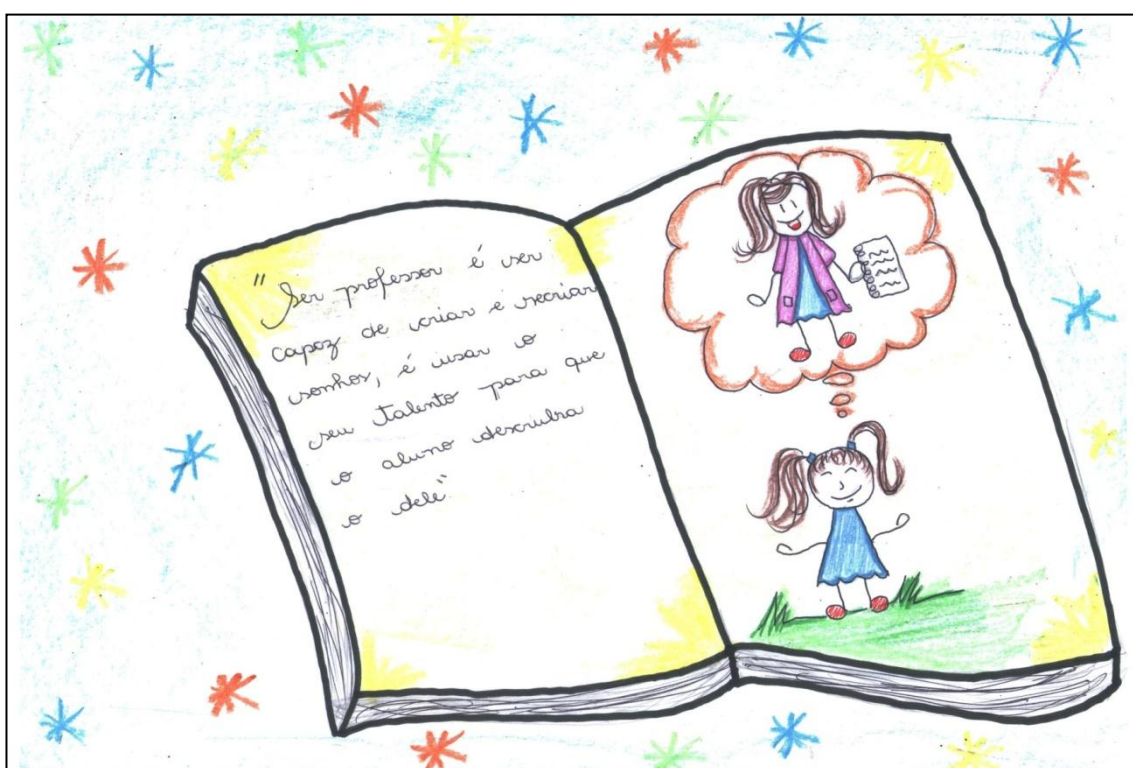 "Ser professor é ser
capaz de criar e recriar
sonhos, é usar o
seu talento para que
o aluno descubra
o dele"